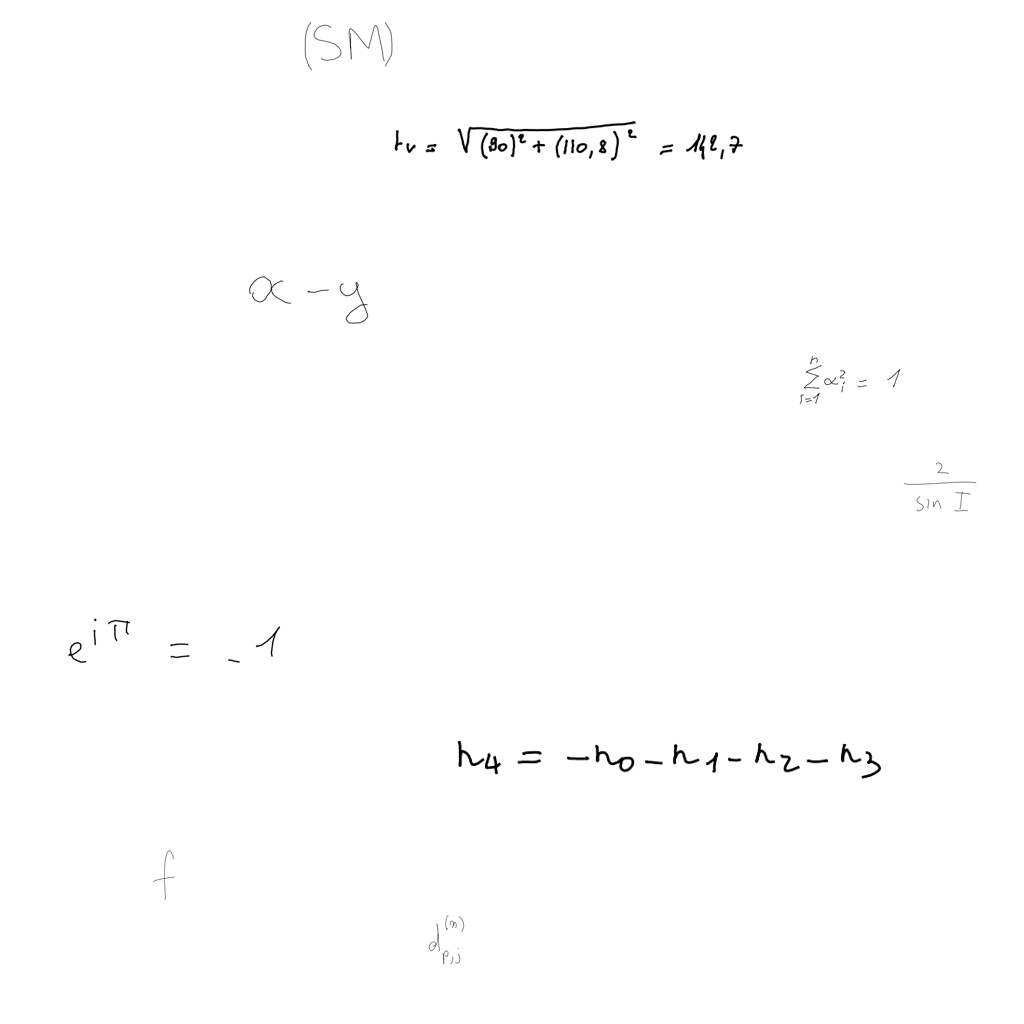 (SM)
t_v = √((90)² + (110,8)²) = 142,7
x - y
∑_{i=1}^{n} α_i² = 1
2 / sin I
e^{iπ} = -1
r_4 = -r_0 - r_1 - r_2 - r_3
f
d_{p,j}^{(n)}